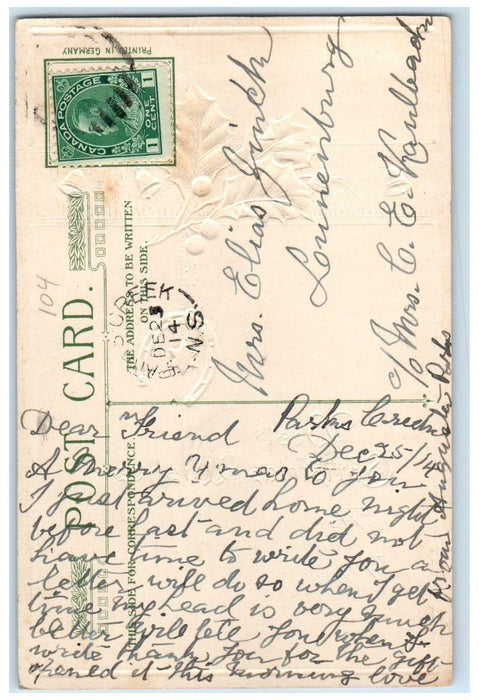 PRINTED IN GERMANY
CANADA POSTAGE
1 ONE CENT 1
104
POST CARD.
THE ADDRESS TO BE WRITTEN
ON THIS SIDE.
THIS SIDE FOR CORRESPONDENCE.
PARKS CREEK
DE 25
14
N.S.
Mrs. Elias
Lunenburg
c/o Mrs. C. E. Kaulbach
Parks Creek
Dec 25/14
Dear Friend
A Merry Xmas to you
I just arived home night
before last and did not
have time to write you a
letter will do so when I get
time my head is very much
better will lete you when I
write thank you for the gift
opened it this morning love
from Augusta Parks